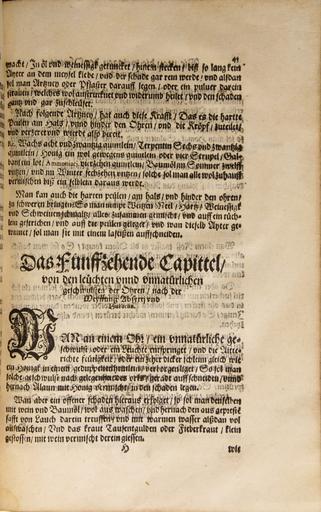 41
macht / In öl und weinessig getuncket / hinein stecken / biß so lang kein
Ayter an dem meysel klebe / vnd der schade gar rein werde / vnd alßdan
sol man Artzney oder Pflaster darauff legen / oder ein puluer darein
strawen / welches wol außtrucknet vnd widerumb hailet / vnd den schaden
gantz vnd gar zuschleüst.
Nach folgende Artzney / hat auch diese Krafft / Das es die harte
Peulen am Halß / vnnd hinder den Ohren / vnd die Kröpff / zuteilet
vnd verzeret vnnd wierdt also bereit.
Wachs acht vnd zwantzig quintlein / Terpentin Sechs vnd zwantzig
quintlein / Honig ein wol gewogens quintlein oder Screupel / Gal-
quintlein / Baumöl im Sommer zwölff
vntzen / vnd im Winter sechßehen vntzen / solche sol man alle wol zuhauff
vermischen biß ein selblein daraus werde.
Man kan auch die harten peülen / am halß / vnd hinder den ohren /
zu schweren bringen So man nimpt Weitzen Meel / Hartz / Weinessig /
vnd Schweinenschmaltz / alles zusammen gemischt / vnd auff ein tüch-
lein gestrichen / vnd auff die peülen geleget / vnd wan dieselb Ayter ge-
winnet / sol man sie mit einem laßeisen auffschneiden.
Das Fünffzehende Capittel /
von den leüchten vnnd vnnatürlichen
geschwulsten der Ohren / nach der
Werffung Absyrti vnd
Hieroclis.
WAN an einem Ohr / ein vnnatürliche ge-
schwulst oder ein Leüchte entspringet / vnd die Aitte-
richte feüchtigkeit / oder ein sehr dicker schleim gleich wie
ein Honig / in einem
solche geschwulst nach gelegenheit des orts / gerade auffschneiden / vnnd
hernach Alaun mit Honig vermischt / in den schaden legen.
Wan aber ein offener schaden hieraus erfolget / so sol man denselben
mit wein vnd Baumöl / wol aus waschen / vnd hernach den ausgepreste
safft von Lauch darein treuffen / vnd mit warmen wasser alßdan vol
auswaschen / Vnd das kraut Tausentgulden oder Fieberkraut / klein
gestossen / mit wein vermischt darein giessen.
wie